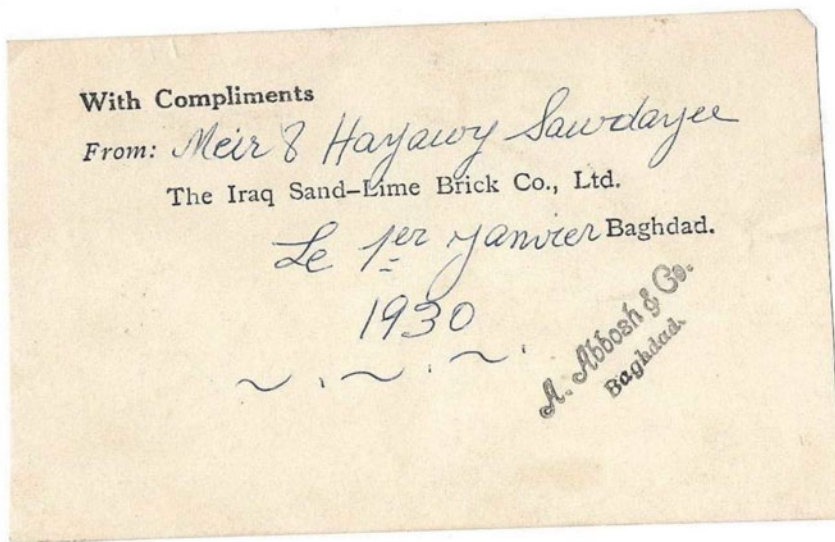 With Compliments
From: Meir & Hayawy Sawdayee
The Iraq Sand-Lime Brick Co., Ltd.
Le 1er Janvier Baghdad.
1930
A. Abbosh & Co.
Baghdad.